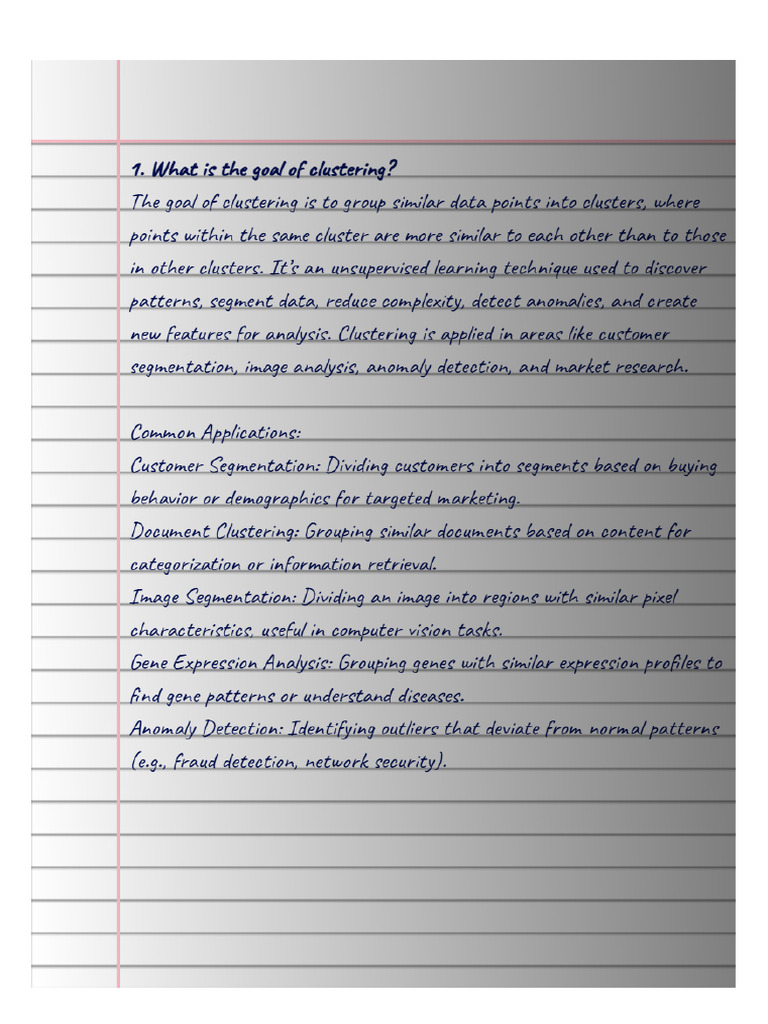 1. What is the goal of clustering?
The goal of clustering is to group similar data points into clusters, where
points within the same cluster are more similar to each other than to those
in other clusters. It's an unsupervised learning technique used to discover
patterns, segment data, reduce complexity, detect anomalies, and create
new features for analysis. Clustering is applied in areas like customer
segmentation, image analysis, anomaly detection, and market research.
Common Applications:
Customer Segmentation: Dividing customers into segments based on buying
behavior or demographics for targeted marketing.
Document Clustering: Grouping similar documents based on content for
categorization or information retrieval.
Image Segmentation: Dividing an image into regions with similar pixel
characteristics, useful in computer vision tasks.
Gene Expression Analysis: Grouping genes with similar expression profiles to
find gene patterns or understand diseases.
Anomaly Detection: Identifying outliers that deviate from normal patterns
(e.g., fraud detection, network security).